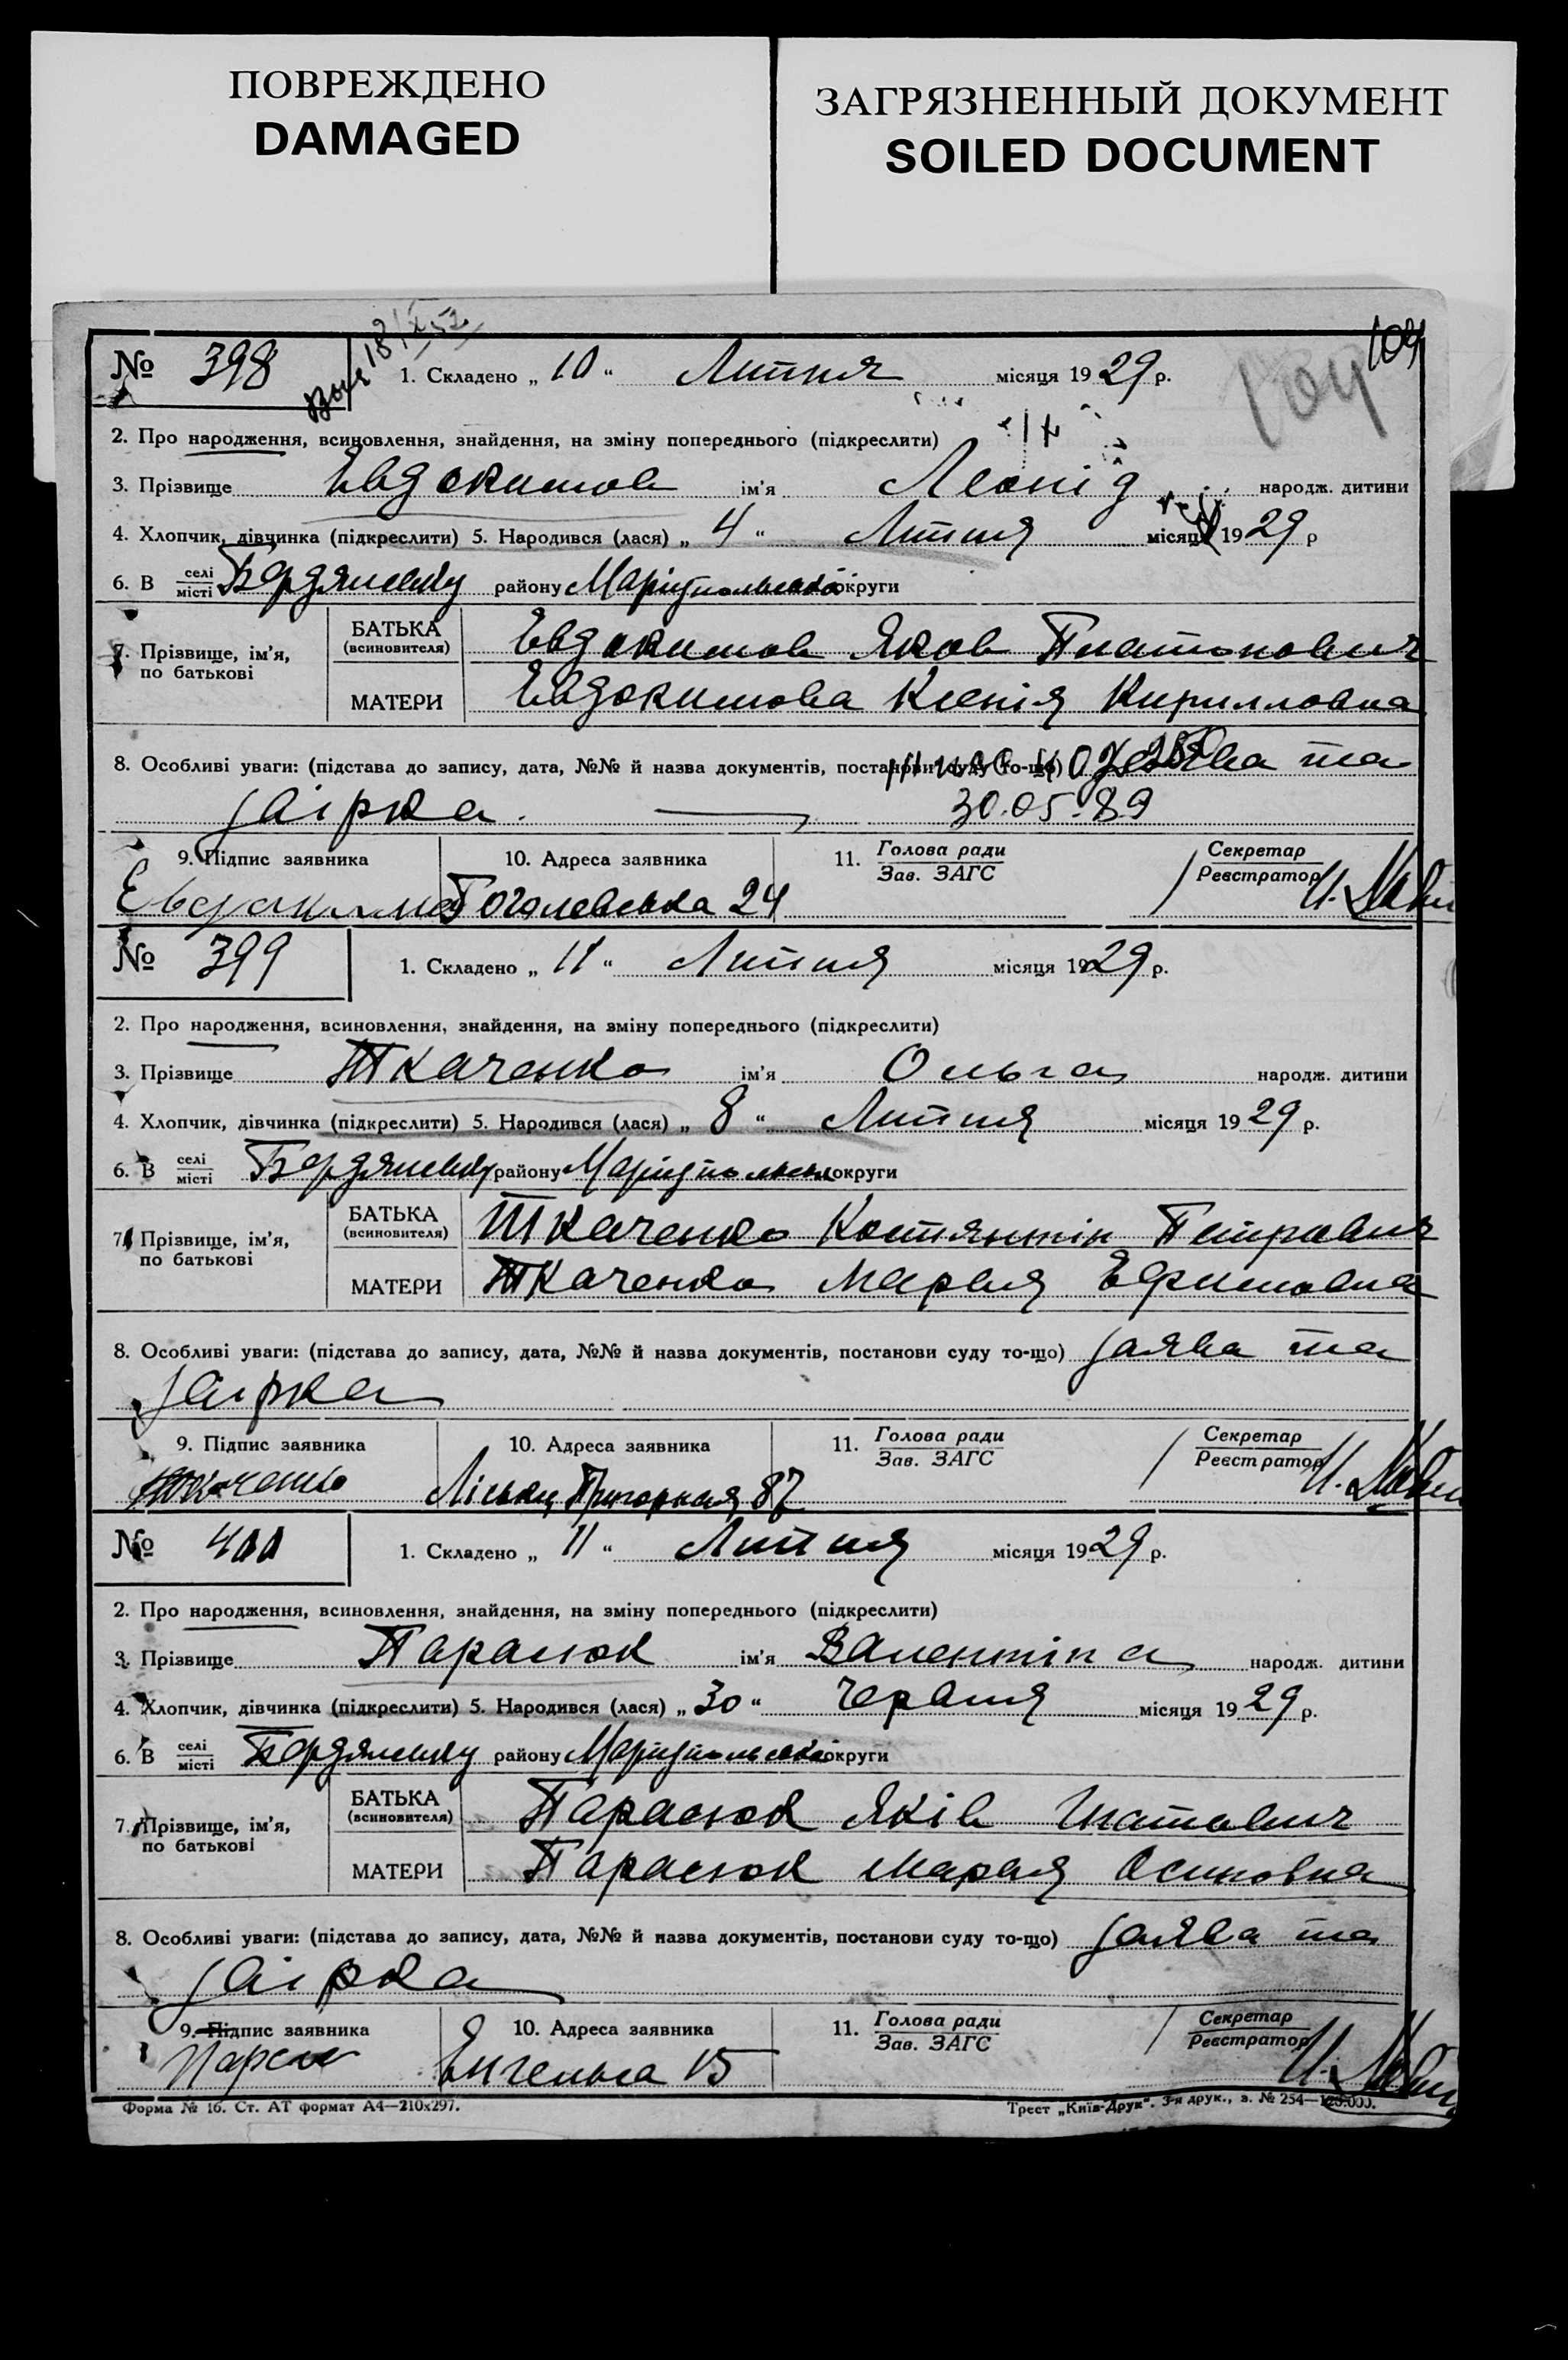 ПОВРЕЖДЕНО
DAMAGED
ЗАГРЯЗНЕННЫЙ ДОКУМЕНТ
SOILED DOCUMENT
104
104
№ 398
1. Складено „ 10 “ Липня місяця 1929 р.
2. Про народження, всиновлення, знайдення, на зміну попереднього (підкреслити)
3. Прізвище Евдокимов ім'я Леонід народж. дитини
4. Хлопчик, дівчинка (підкреслити) 5. Народився (лася) „ 4 “ Липня місяця 1929 р
6. В селі/місті Бердянську району Маріупольської округи
7. Прізвище, ім'я, по батькові
БАТЬКА (всиновителя) Евдокимов Яков Платонович
МАТЕРИ Евдокимова Ксенія Кирилловна
8. Особливі уваги: (підстава до запису, дата, №№ й назва документів, постанови суду то-що) Заява та
Заірка.
30.05.89
9. Підпис заявника
10. Адреса заявника
11. Голова ради/Зав. ЗАГС
Секретар/Реєстратор
Гоголевська 24
№ 399
1. Складено „ 11 “ Липня місяця 1929 р.
2. Про народження, всиновлення, знайдення, на зміну попереднього (підкреслити)
3. Прізвище Ткаченко ім'я Ольга народж. дитини
4. Хлопчик, дівчинка (підкреслити) 5. Народився (лася) „ 8 “ Липня місяця 1929 р.
6. В селі/місті Бердянську району Маріупольськ округи
7. Прізвище, ім'я, по батькові
БАТЬКА (всиновителя) Ткаченко Костянтін Петрович
МАТЕРИ Ткаченко Марыя Ефимовна
8. Особливі уваги: (підстава до запису, дата, №№ й назва документів, постанови суду то-що) Заява та
Заірка
9. Підпис заявника
10. Адреса заявника
11. Голова ради/Зав. ЗАГС
Секретар/Реєстратор
87
№ 400
1. Складено „ 11 “ Липня місяця 1929 р.
2. Про народження, всиновлення, знайдення, на зміну попереднього (підкреслити)
3. Прізвище Парасюк ім'я Валентіна народж. дитини
4. Хлопчик, дівчинка (підкреслити) 5. Народився (лася) „ 30 “ Червня місяця 1929 р.
6. В селі/місті Бердянську району Маріупольської округи
7. Прізвище, ім'я, по батькові
БАТЬКА (всиновителя) Парасюк Яків Игнатович
МАТЕРИ Парасюк Марыя Осиповна
8. Особливі уваги: (підстава до запису, дата, №№ й назва документів, постанови суду то-що) Заява та
Заірка
9. Підпис заявника
10. Адреса заявника
11. Голова ради/Зав. ЗАГС
Секретар/Реєстратор
Енгельса 15
Форма № 16. Ст. АТ формат А4—210х297.
Трест „Київ-Друк“. 3-я друк., з. № 254—120.000.